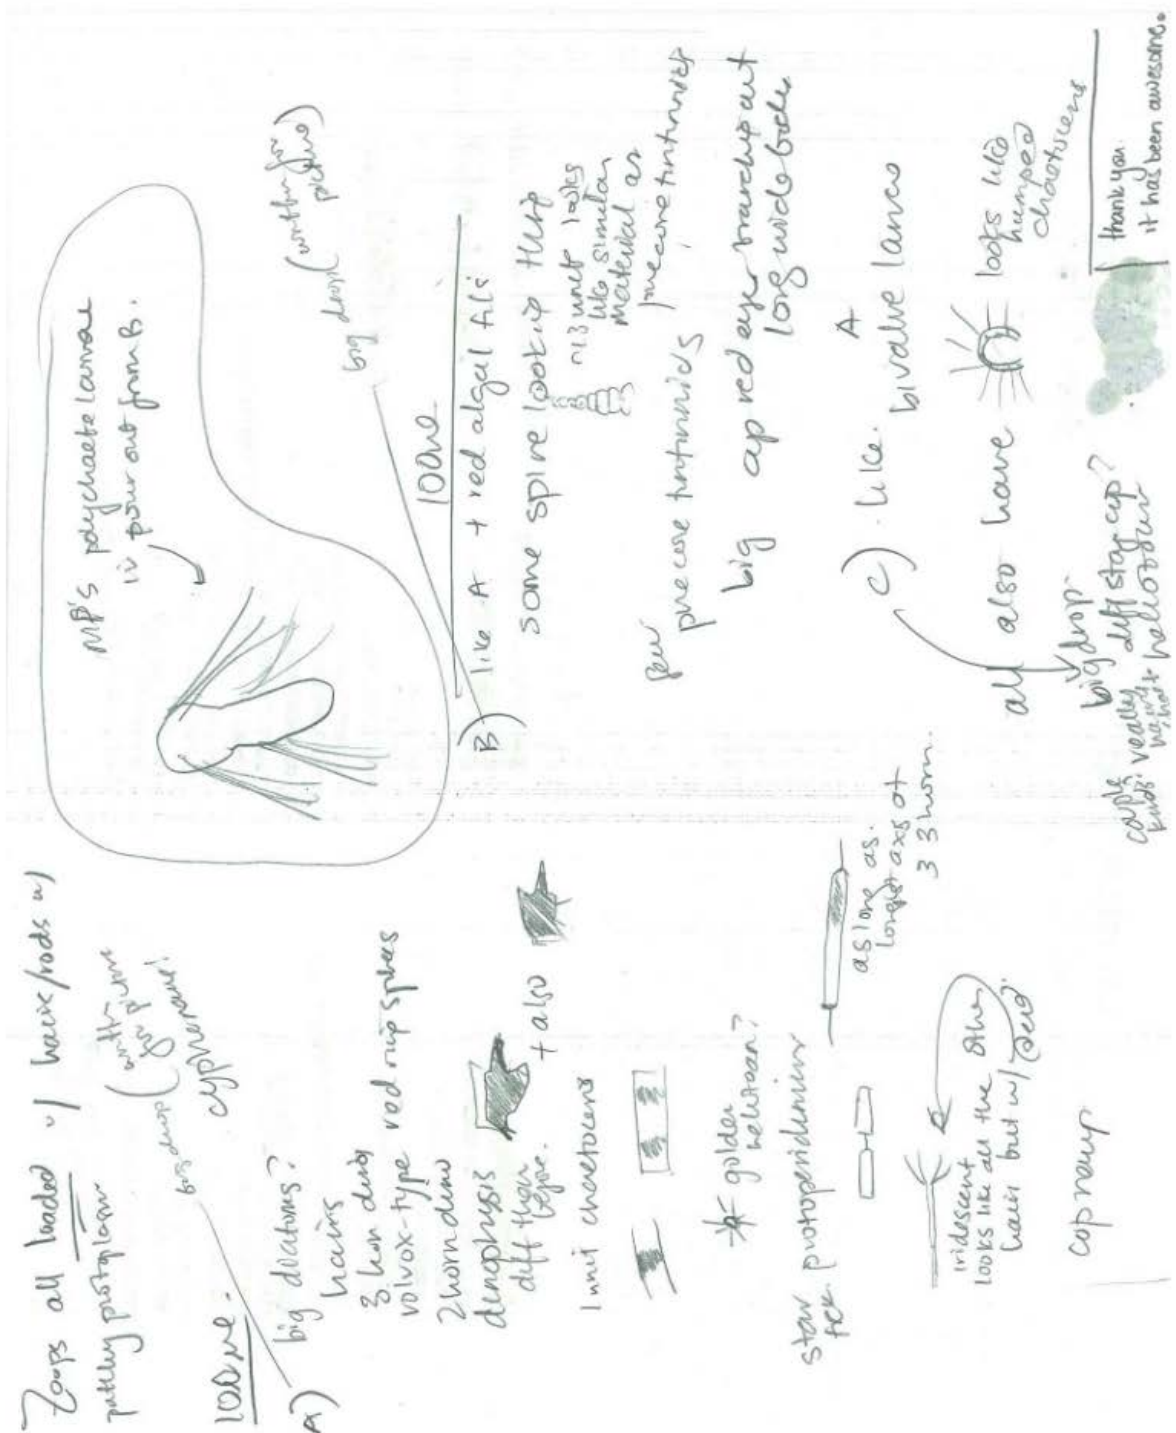 Zoops all loaded w/ hairs/rods w/
patchy protoplasm
100me.
A)
big drop (worth
for picture
cyphonaut!
big diatoms?
hairs
3 horn dino
volvox-type red rip spheres
2 horn dino
dinophysis
diff than
+ also
1 unit chaetoceros
golden
heliozoan?
star
protoperidinium
as long as
longest axis of
3 horn.
iridescent
looks like all the other
hairs but w/
copnaup
MB's polychaete larvae
in pour out from B.
big drop (worth for
picture)
100me
B) like A + red algal fils
some spine lookin thing
looks
like similar
material as
precore tintinnids
few
precore tintinnids
big ap red eye
long wide body
C) like A
bivalve larvae
all also have
looks like
humped
chaetoceros
big drop.
couple
kinds
really
diff
heliozoan
thank you.
it has been awesome.